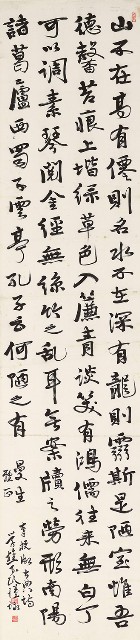 山不在高有僊則名水不在深有龍則靈斯是陋室唯吾
德馨苔痕上堦綠草色入簾青談笑有鴻儒往來無白丁
可以調素琴閱金經無絲竹之亂耳無案牘之勞形南陽
諸葛廬西蜀子雲亭孔子云何陋之有
曼生
雅正